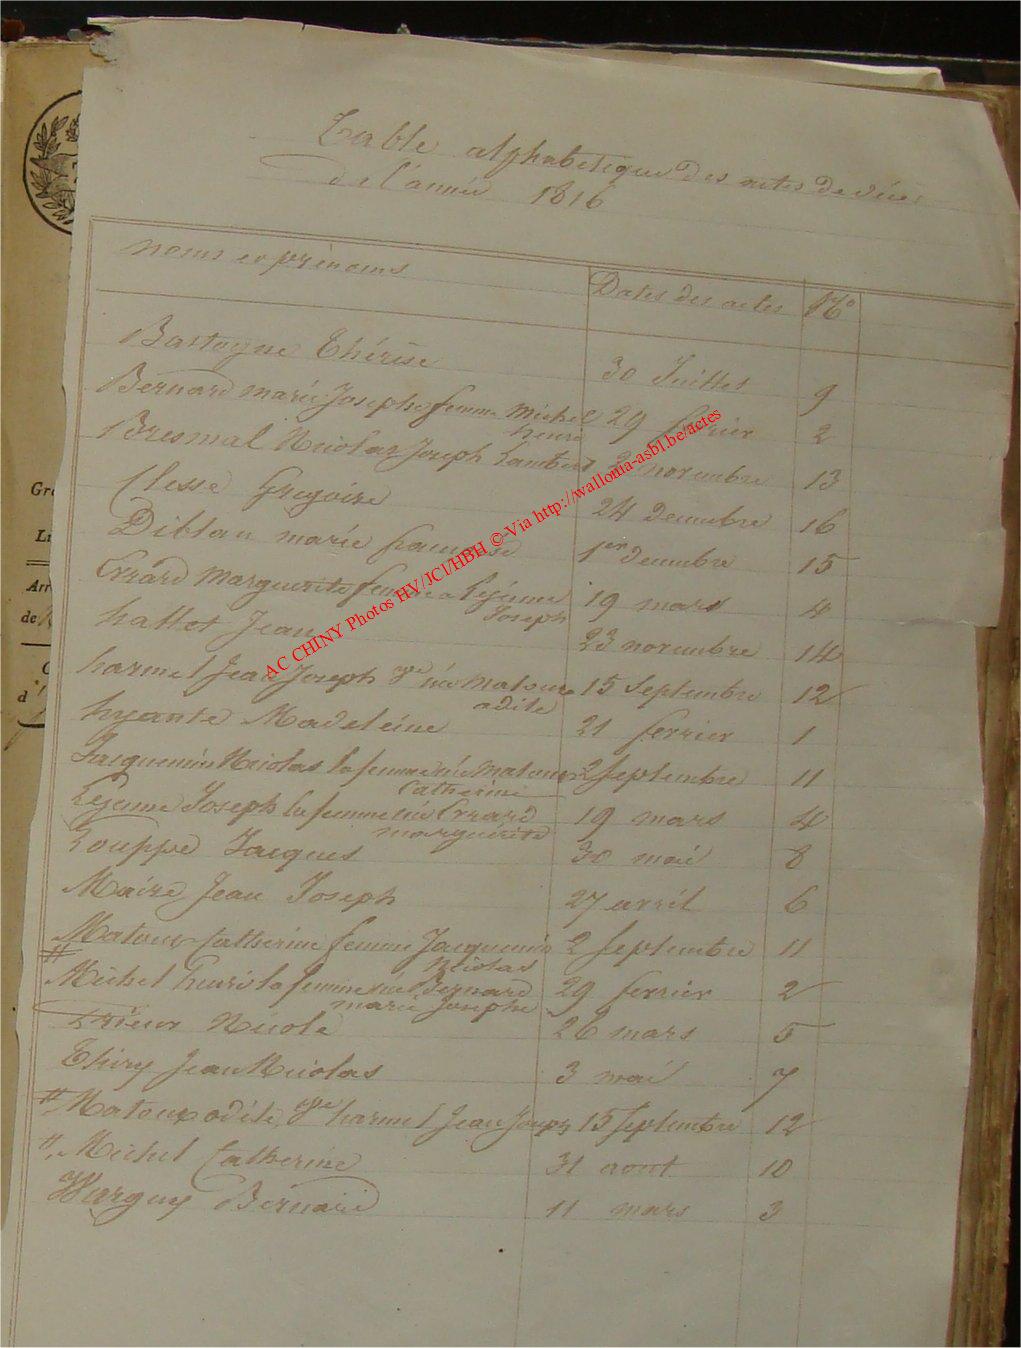 Table alphabetique des actes de décès
de l'année 1816
noms et prénoms Dates des actes No
Bastogne Thérèse 30 Juillet 9
Bernard marie Josephe femme Michel 29 fevrier 2
henri
Bresmal Nicolas Joseph Lambert 2 novembre 13
Clesse Gregoire 24 decembre 16
Diblau marie francoise 1er decembre 15
Evrard Marguerite femme a Lejeune 19 mars 4
Joseph
hallet Jean 23 novembre 14
harmel Jean Joseph née Matoux 15 Septembre 12
odile
hyante Madeleine 21 fevrier 1
Jacquemin Nicolas la femme née Matoux 2 Septembre 11
Catherine
Lejeune Joseph la femme née Evrard 19 mars 4
marguérite
Louppe Jacques 30 mai 8
Maire Jean Joseph 27 avril 6
Matoux Catherine femme Jacquemin 2 Septembre 11
Nicolas
Michel henri la femme née Bernard 29 fevrier 2
marie Josephe
Prieur Nicole 26 mars 5
Thiry Jean Nicolas 3 mai 7
# Matoux odile, harmel Jean Joseph 15 Septembre 12
Michel Catherine 31 aout 10
Wargny Bernard 11 mars 3
Gr
Li
Arr
de
d'
AC CHINY Photos HV/JCl/HBH © Via http://wallonia-asbl.be/actes